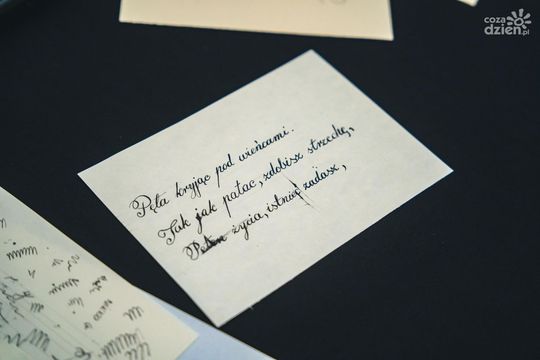 coza
dzień.pl
Pęta kryjąc pod wieńcami.
Tak jak pałac, zdobisz strzechę,
Pełen życia, istnieć żądasz,